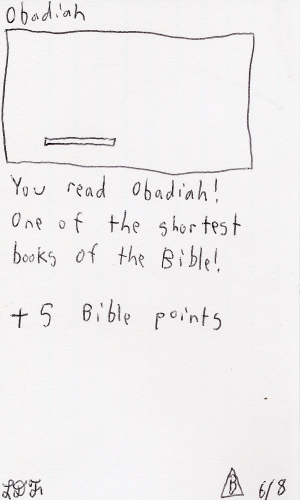 Obadiah
You read Obadiah!
One of the shortest
books of the Bible!
+5 Bible points
B 6/8